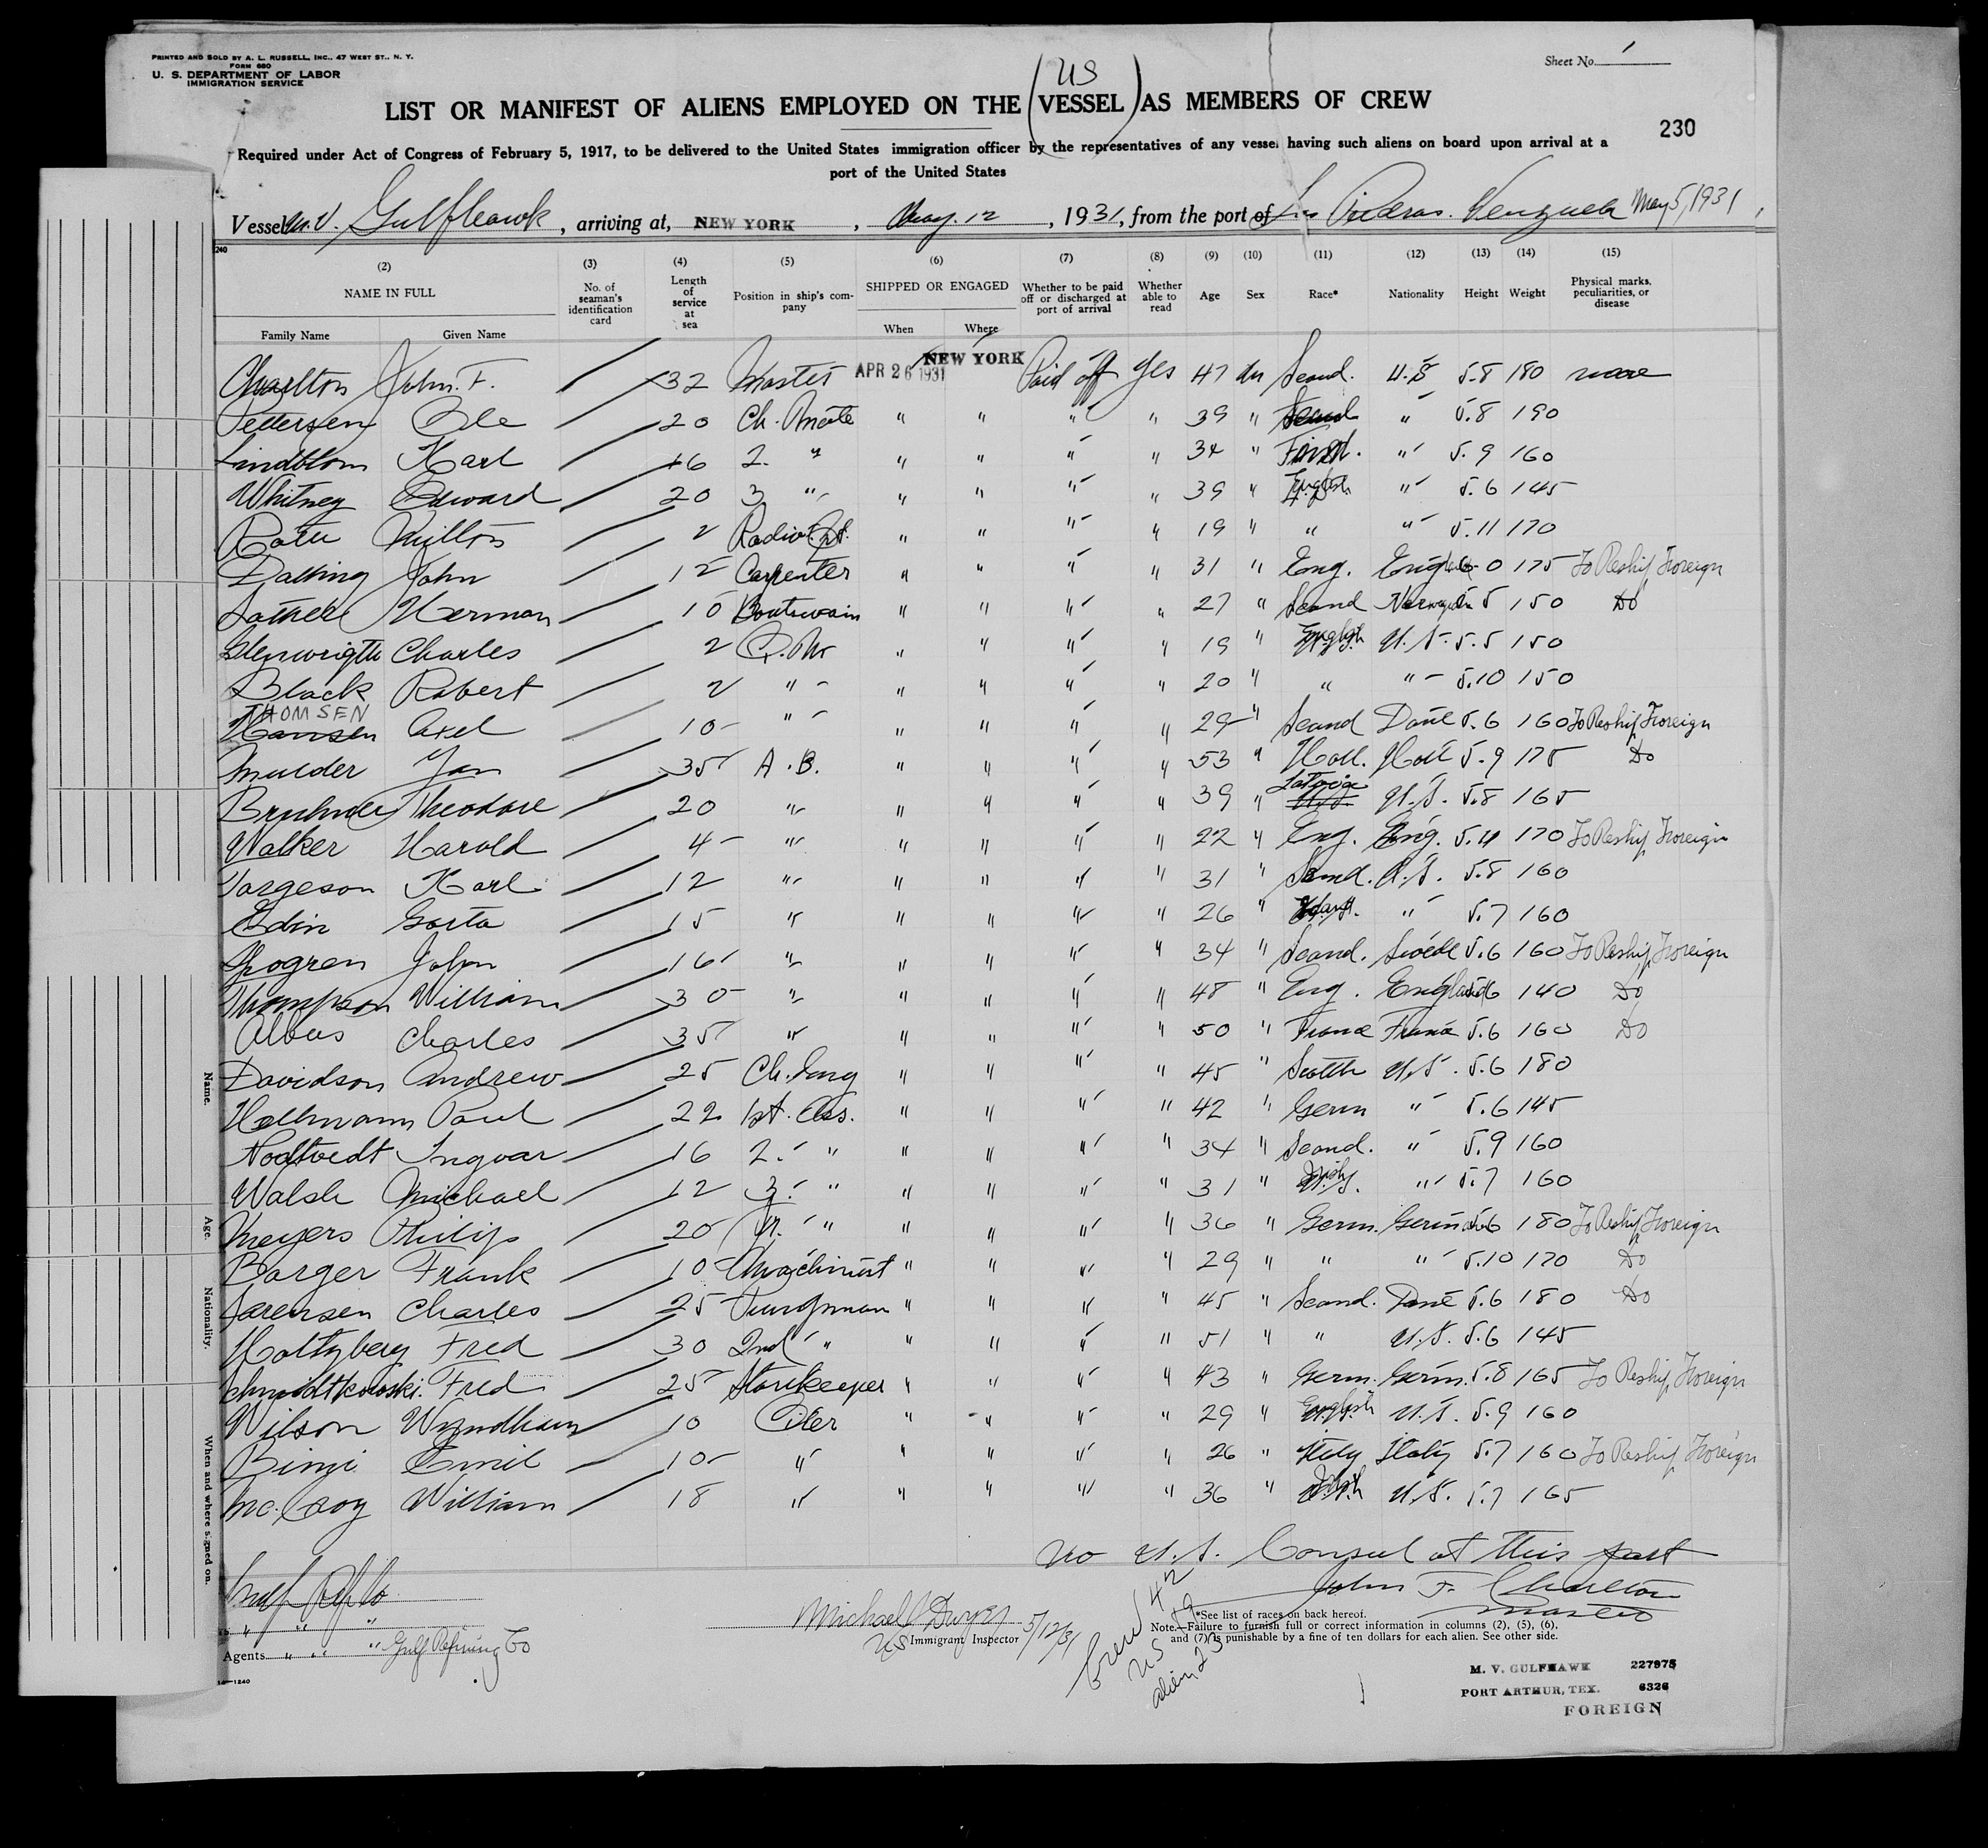 PRINTED AND SOLD BY A. L. RUSSELL, INC., 47 WEST ST., N. Y.
FORM 680
U. S. DEPARTMENT OF LABOR
IMMIGRATION SERVICE
Sheet No. 1
US
LIST OR MANIFEST OF ALIENS EMPLOYED ON THE (VESSEL) AS MEMBERS OF CREW
230
Required under Act of Congress of February 5, 1917, to be delivered to the United States immigration officer by the representatives of any vessel having such aliens on board upon arrival at a
port of the United States
Vessel M.V. Gulfhawk, arriving at, NEW YORK, May. 12, 1931, from the port of Las Piedras. Venzuela May 5, 1931
240
(2) (3) (4) (5) (6) (7) (8) (9) (10) (11) (12) (13) (14) (15)
NAME IN FULL No. of seaman's identification card Length of service at sea Position in ship's company SHIPPED OR ENGAGED Whether to be paid off or discharged at port of arrival Whether able to read Age Sex Race* Nationality Height Weight Physical marks, peculiarities, or disease
Family Name Given Name When Where
Charlton John. F. 32 Master APR 26 1931 NEW YORK Paid off Yes 47 M Scand. U.S 5.8 180 none
Pettersen Ole 20 Ch. Mate " " " " 39 " Scand " 5.8 190
Lindblom Karl 16 2. " " " " " 34 " Finish. " 5.9 160
Whitney Edward 20 3 " " " " " 39 " English " 5.6 145
Milton 2 Radio Opt. " " " " 19 " " " 5.11 170
Dalling John 12 Carpenter " " " " 31 " Eng. England 6-0 175 To Reship Foreign
Herman 10 Boatswain " " " " 27 " Scand Norwegian 5 150 Do
Glenwright Charles 2 Q.M. " " " " 19 " English U.S. 5.5 150
Black Robert 2 " " " " " 20 " " " 5.10 150
THOMSEN
Hansen Axel 10 " " " " " 29 " Scand Dane 5.6 160 To Reship Foreign
Mulder Jan 35 A.B. " " " " 53 " Holl. Holl 5.9 175 Do
Theodore 20 " " " " " 39 " Latvia U.S. 5.8 165
Walker Harold 4 " " " " " 22 " Eng. Eng. 5.11 170 To Reship Foreign
Torgeson Karl 12 " " " " " 31 " Scand. U.S. 5.8 160
Edin Gosta 15 " " " " " 26 " " 5.7 160
John 16 " " " " " 34 " Scand. Swede 5.6 160 To Reship Foreign
Thompson William 30 " " " " " 48 " Eng. England 5.6 140 Do
Albus Charles 35 " " " " " 50 " France France 5.6 160 Do
Davidson Andrew 25 Ch. Eng " " " " 45 " Scotch U.S. 5.6 180
Hellmann Paul 22 1st. Ass. " " " " 42 " Germ " 5.6 145
Nodtvedt Ingvar 16 2. " " " " " 34 " Scand. " 5.9 160
Walsh Michael 12 3. " " " " " 31 " Irish " 5.7 160
Meyers Philip 20 Jr. " " " " " 36 " Germ. German 5.6 180 To Reship Foreign
Barger Frank 10 Machinist " " " " 29 " " " 5.10 170 Do
Sorensen Charles 25 Pumpman " " " " 45 " Scand. Dane 5.6 180 Do
Holtzberg Fred 30 2nd " " " " " 51 " " U.S. 5.6 145
Schmidtkowski. Fred 25 Storekeeper " " " " 43 " Germ. Germ. 5.8 165 To Reship Foreign
Wilson Wyndham 10 Oiler " " " " 29 " English U.S. 5.9 160
Binzi Emil 10 " " " " " 26 " Italy Italy 5.7 160 To Reship Foreign
Mc. Coy William 18 " " " " " 36 " Irish U.S. 5.7 165
No U.S. Consul at this port
John F. Charlton
Master
Gulf Ref Co
" " "
Agents " " " Gulf Refining Co
Michael J Dwyer 5/12/31
US Immigrant Inspector
Crew 42
US 19
alien 23
*See list of races on back hereof.
Note.—Failure to furnish full or correct information in columns (2), (5), (6),
and (7) is punishable by a fine of ten dollars for each alien. See other side.
M. V. GULFHAWK 227975
PORT ARTHUR, TEX. 6326
FOREIGN
—1240
Name.
Age.
Nationality.
When and where signed on.